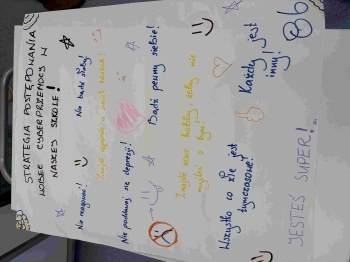 STRATEGIA POSTĘPOWANIA
WOBEC CYBERPRZEMOCY W
NASZEJ SZKOLE!
Nie reagować!
Nie bądź słaby!
Nie poddawaj się depresji!
Bądź pewny siebie!
Znajdź nowe hobby, żeby nie
myśleć o tym!
Wszystko co złe jest
tymczasowe!
Każdy jest
inny!
JESTEŚ SUPER!
8b